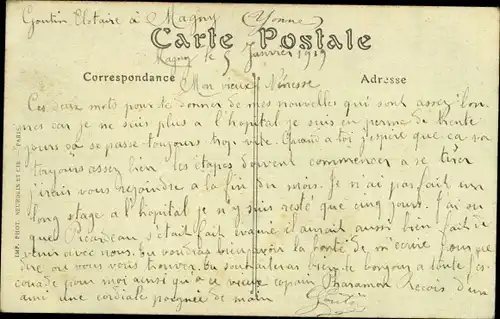 Goutin Clotaire à Magny Yonne
Carte Postale
Magny le 5 Janvier 1919
Correspondance
Adresse
Mon vieux Nénesse
Ces deux mots pour te donner de mes nouvelles qui sont assez bon
nes car je ne suis plus a l'hopital je suis en perme de trente
jours ça se passe toujours trop vite. Quand a toi j'espère que ca va
toujours assez bien les étapes doivent commencer a se tirer
j'irais vous rejoindre a la fin du mois. Je n'ai pas fait un
long stage a l'hopital je n'y suis resté que cinq jours. J'ai su
que Picardeau s'était fait évacué il aurait aussi bien fait de
venir avec nous. Tu voudras bien avoir la bonté de m'écrire pour me
dire ou vous vous trouvez. Tu souhaiteras bien le bonjour a toute l'es
couade pour moi ainsi qu'a ce vieux copain Pharamon reçois d'un
ami une cordiale poignée de main
IMP. PHOT. NEURDEIN ET CIE. PARIS.